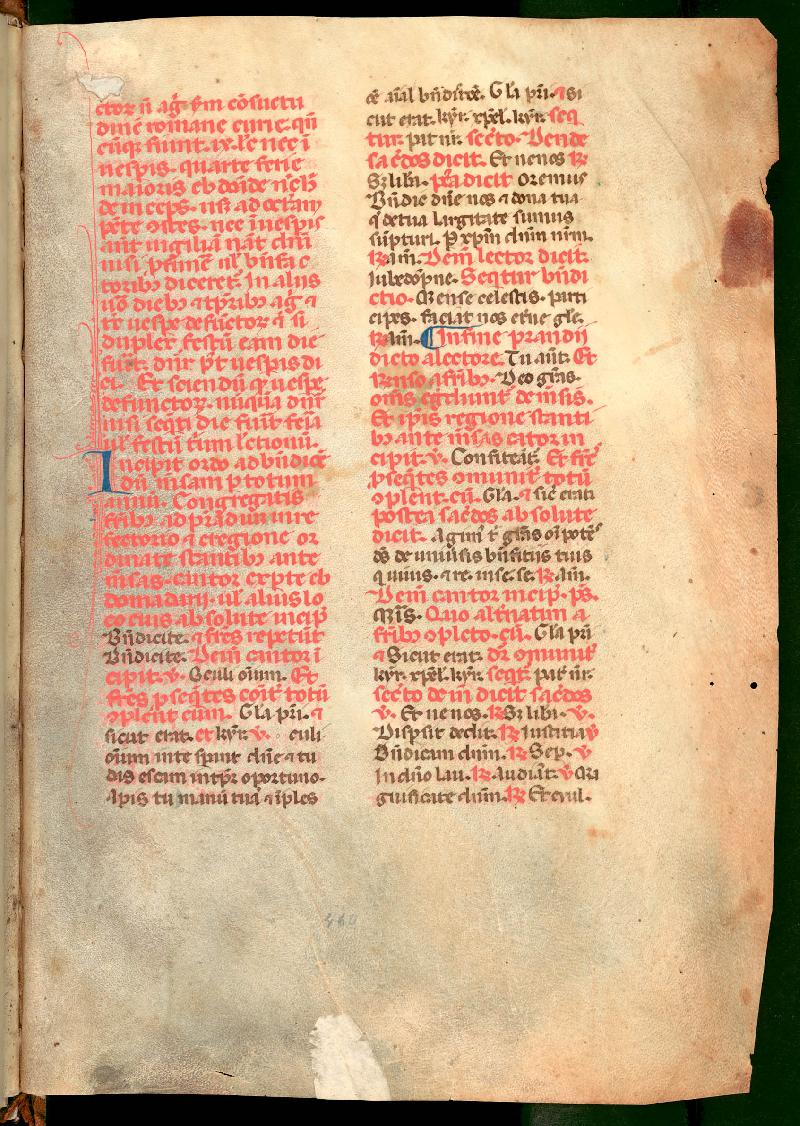 ctor̄ ñ ag̃ s̃m cōsuetu
dinē romane curie. qñ
cūq̃ fiunt. ix. lc̃ nec ī
uespis. quarte ferie
maioris eb
deinceps. usq̃ ad octam̄
nec ī uesp̄is
aut uigiliā nat̄ dn̄i
nisi
toribꝫ diceret̄. In aliis
diebꝫ ⁊ tp̄ribꝫ ag̃ ⁊
uesp̄e defūctoꝝ ⁊ si
duplex festū eam die
fuer̄t. dn̄r p̃t uesp̄is di
ei. Et sciendū q̃ uesp̄e
defunctoꝝ. nūquā dn̄r
nisi seq̄ti die fuit̄ feīa
ul̄ festū trium lectionū.
Incipit ordo ad bn̄dicē
dū mēsam p totum
annū. Congregatis
fr̄ibꝫ ad prādium ī re
fectorio ⁊ e regione or
dinate stantibꝫ ante
mēsas. cantor ex pte eb
domadarij. ul̄ alius lo
co eius absolute īcip̄
Bn̄dicite. ⁊ fr̄es repetūt
Bn̄dicite. Deīn cantor ī
cipit. ℣. Oculi oīum. Et
fr̄es p̄seq̄tes coīt̄ totū
ꝯplent eum. Gl̄a pr̄i. ⁊
sicut erat. et kyr̄. ℣. culi
oīum in te spant dn̄e ⁊ tu
das escam in tp̄r oportuno.
Apis tu manū tuā ⁊ īples
oē aīal bn̄dictōe. Gl̄a pr̄i. ⁊ si
cut erat. kyr̄. xp̄el. kyr̄. seq̄
tur. pat̄ nr̄. secr̄to. Deinde
sac̄dos dicit. Et ne nos ℟
S; libā. p̄ea dicit oremus
Bn̄dic dn̄e nos ⁊ dona tua
q̄ de tua largitate sumus
sūpturi. P xp̄m dn̄m nr̄m.
℟ am̄. Deīn lector dicit.
Iube dōpne. Seq̄tur bn̄di
ctio. Mense celestis. parti
cipes. faciat nos et̄ne gle.
℟ am̄. In fine prandij
dicto a lectore. Tu aut̄. Et
℟enso a fr̄ibꝫ. Deo gr̄as.
om̄s egrediunt̄ de mēsis.
Et ip̄is regione stanti
bꝫ ante mēsas cātor in
cipit. ℣. Confiteāt̄. Et fr̄es
p̄seq̄tes ꝯmunit̄ totū
ꝯplent. eū. Gl̄a. ⁊ sic̄ erat.
postea sac̄dos absolute
dicit. Agim̄ t̄ gr̄as oīpotēs
ds̄ de uniūsis bn̄ficijs tuis
q uiuis. ⁊ re. in se. se. ℟ am̄.
Deīn cantor incip̄. ps̄.
Mis̄. Quo alt̄natim a
fr̄ibꝫ ꝯpleto. eū. Gl̄a pr̄i
⁊ Sicut erat. dr̄ ꝯmunit̄
kyr̄. xp̄el. kyr̄. seq̄t. pat̄ nr̄.
secr̄to deīn dicit sac̄dos
℣. Et ne nos. ℟ S; libā. ℣.
Dispsit dedit. ℟ Iusticia ℣
Bn̄dicam dn̄m. ℟ Sep̄. ℣
In dn̄o lau. ℟ Audiāt. ℣ Ma
gnificate dn̄m. ℟ Et exul.